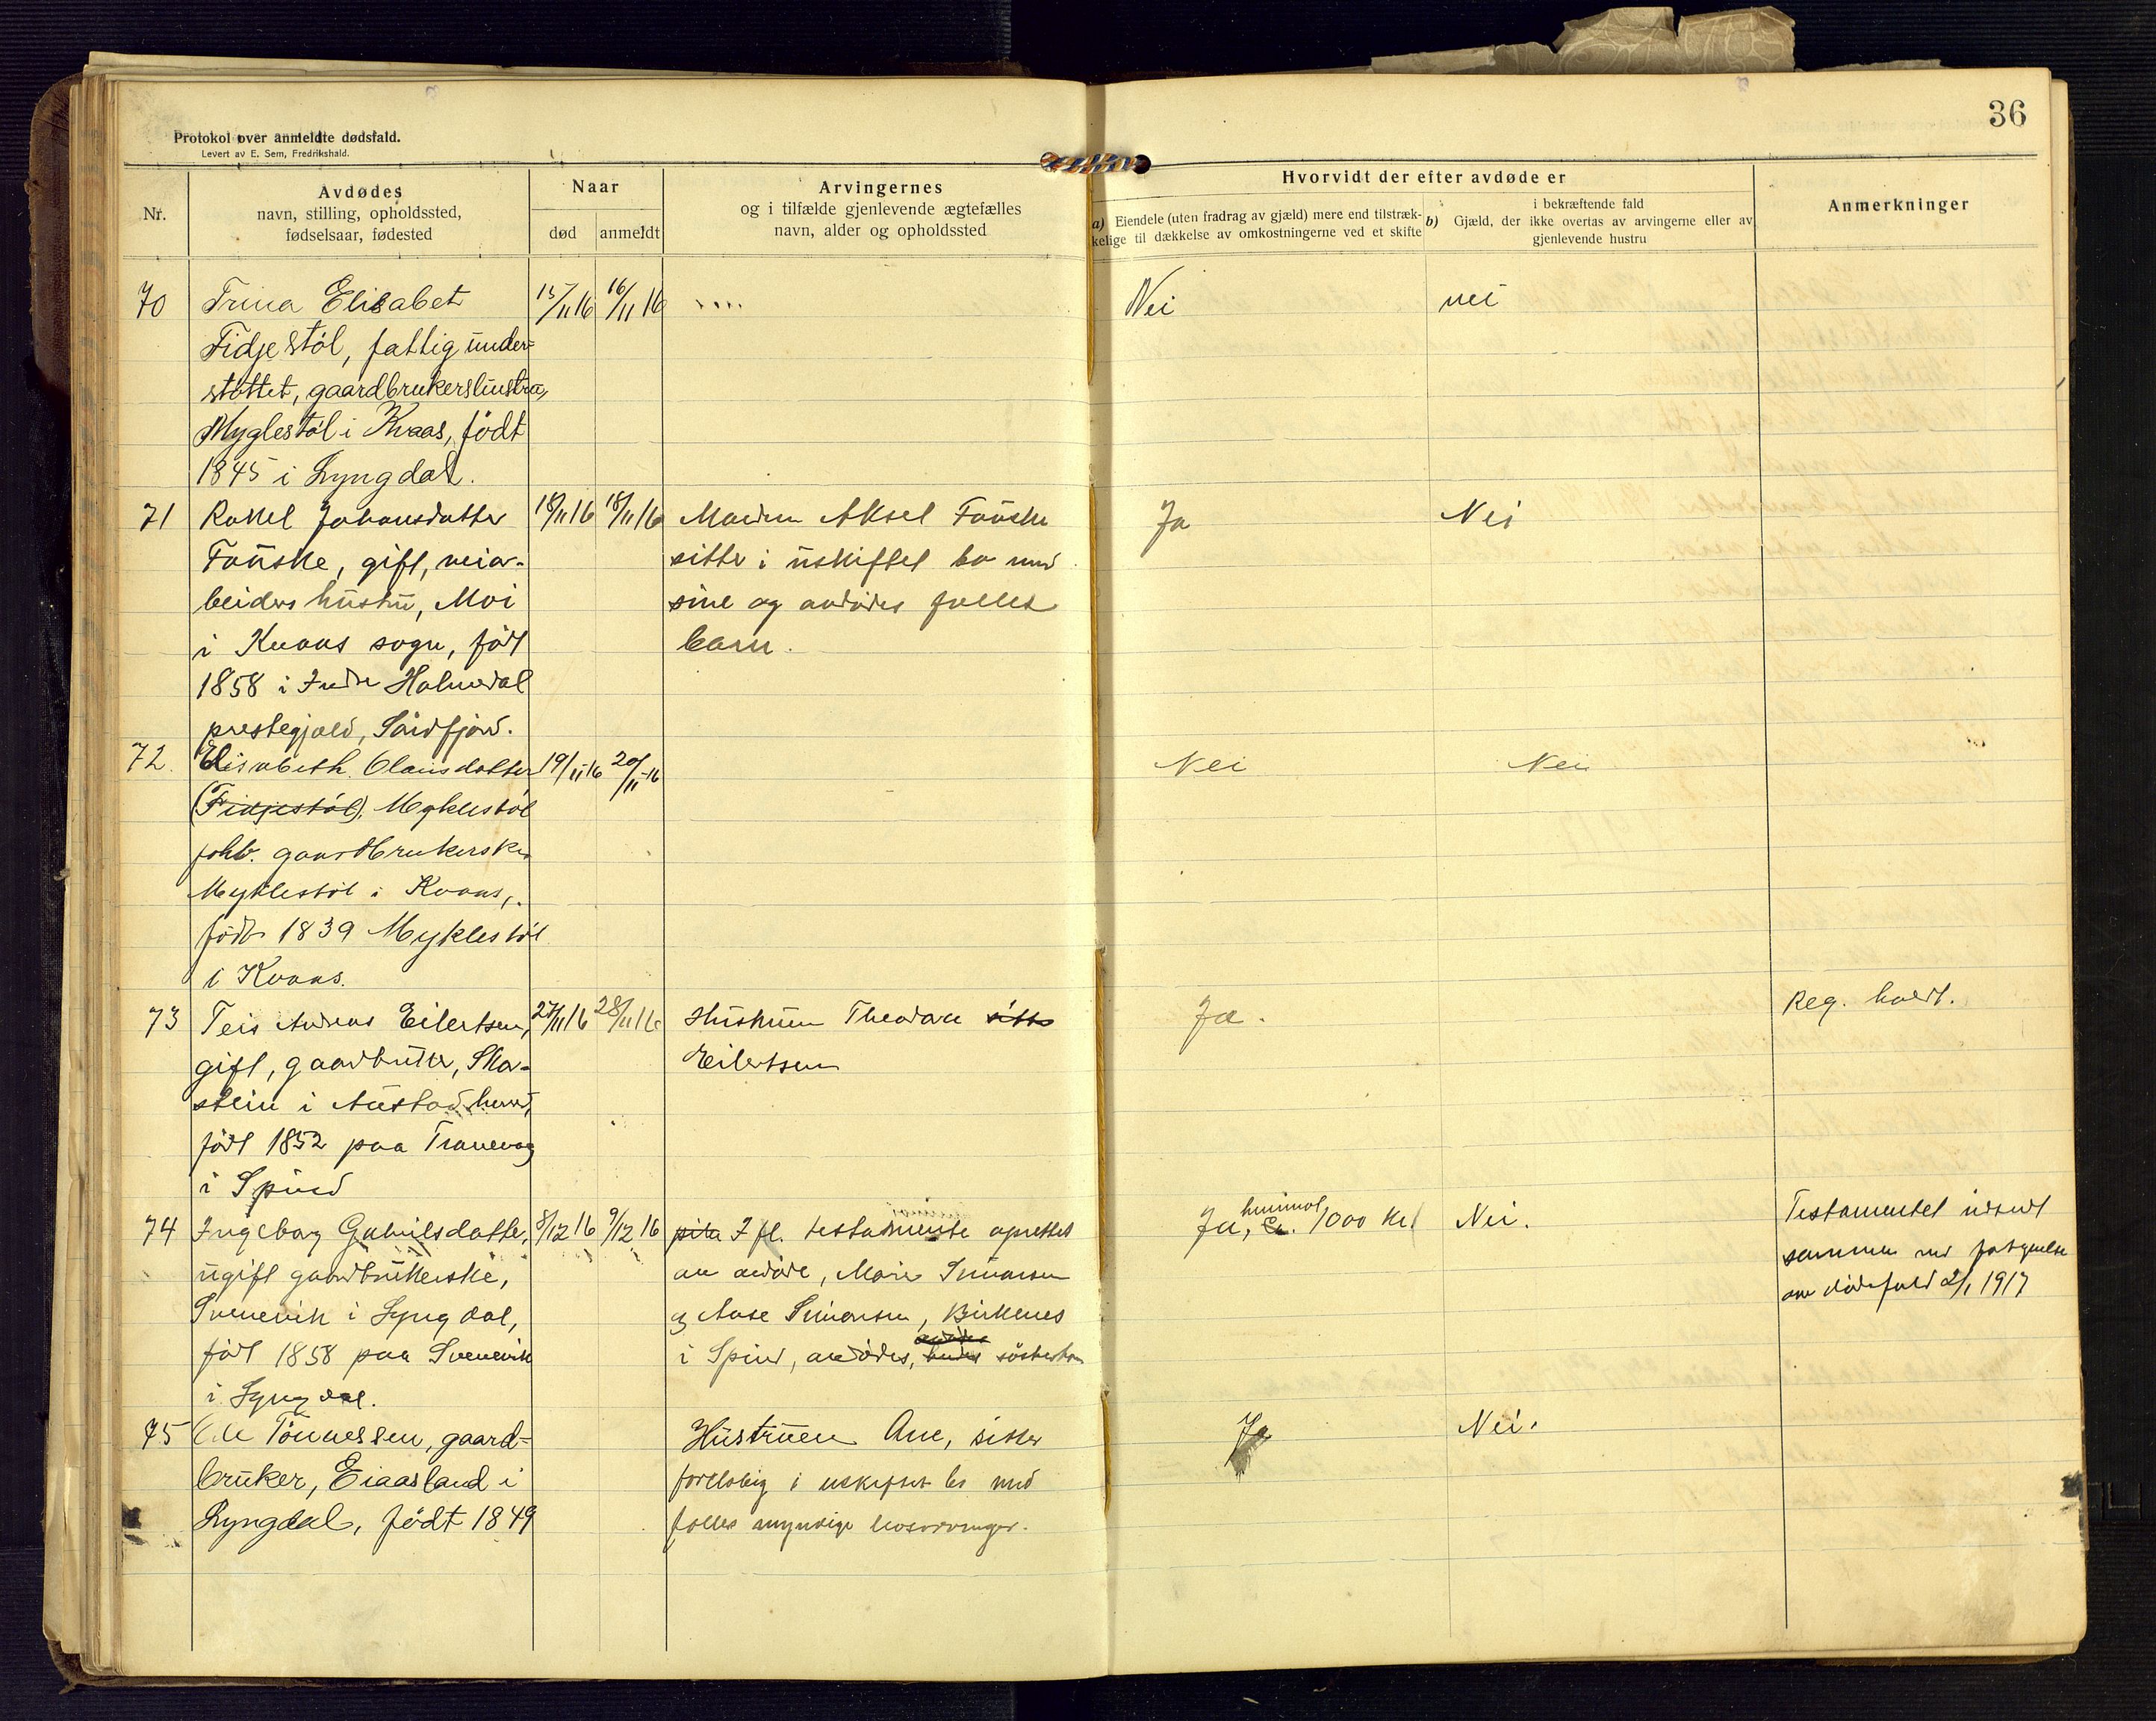 36
Protokol over anmeldte dødsfald.
Levert av E. Sem, Fredrikshald.
Nr.
Avdødes
navn, stilling, opholdssted,
fødselsaar, fødested
Naar
død
anmeldt
Arvingernes
og i tilfælde gjenlevende ægtefælles
navn, alder og opholdssted
Hvorvidt der efter avdøde er
a) Eiendele (uten fradrag av gjæld) mere end tilstræk-
kelige til dækkelse av omkostningerne ved et skifte
i bekræftende fald
b) Gjæld, der ikke overtas av arvingerne eller av
gjenlevende hustru
Anmerkninger
70 Trina Elisabet 15/11 16 16/11 16 Nei nei
Fidjestöl, fattigunder=
støttet, gaardbrukershustru,
Myglestöl i Kvaas, födt
1845 i Lyngdal.
71 Rakel Johansdatter 18/11 16 18/11 16 Manden Aksel Fauske Ja Nei
Fauske, gift, veiar- sitter i uskiftet bo med
beiders hustru, Moi sine og avdødes fælles
i Kvaas sogn, født barn.
1858 i Indre Holmedal
prestegjæld, Søndfjord.
72. Elisabeth Olausdatter 19/11 16 20/11 16 Nei Nei
(Fidjestöl), Myklestöl
fhv. gaardbrukerske
Myklestöl i Kvaas,
födt 1839 Myklestöl
i Kvaas.
73 Teis Andreas Eilertsen, 27/11 16 28/11 16 Hustruen Theodora sitter Ja. Reg.holdt.
gift, gaardbruker, Ska- Eilertsen
stein i Austad herred,
født 1852 paa Tranevåg
i Spind
74 Ingeborg Gabrielsdatter, 8/12 16 9/12 16 I fl. testamente oprettet Ja, 1000 kr. Nei. Testamentet indsendt
ugift gaardbrukerske, av avdøde, Marie Simonsen sammen med
Svenevik i Lyngdal, og Aase Simonsen, Birkenes om dødsfald 2/1 1917
født 1858 paa Svenevik i Spind, avdødes, søsterbarn
i Lyngdal.
75 Ole Tönnessen, gaard= Hustruen Ane, sitter Ja Nei.
bruker, Eiaasland i foreløbig i uskiftet bo med
Lyngdal, födt 1849 fælles myndige livsarvinger.